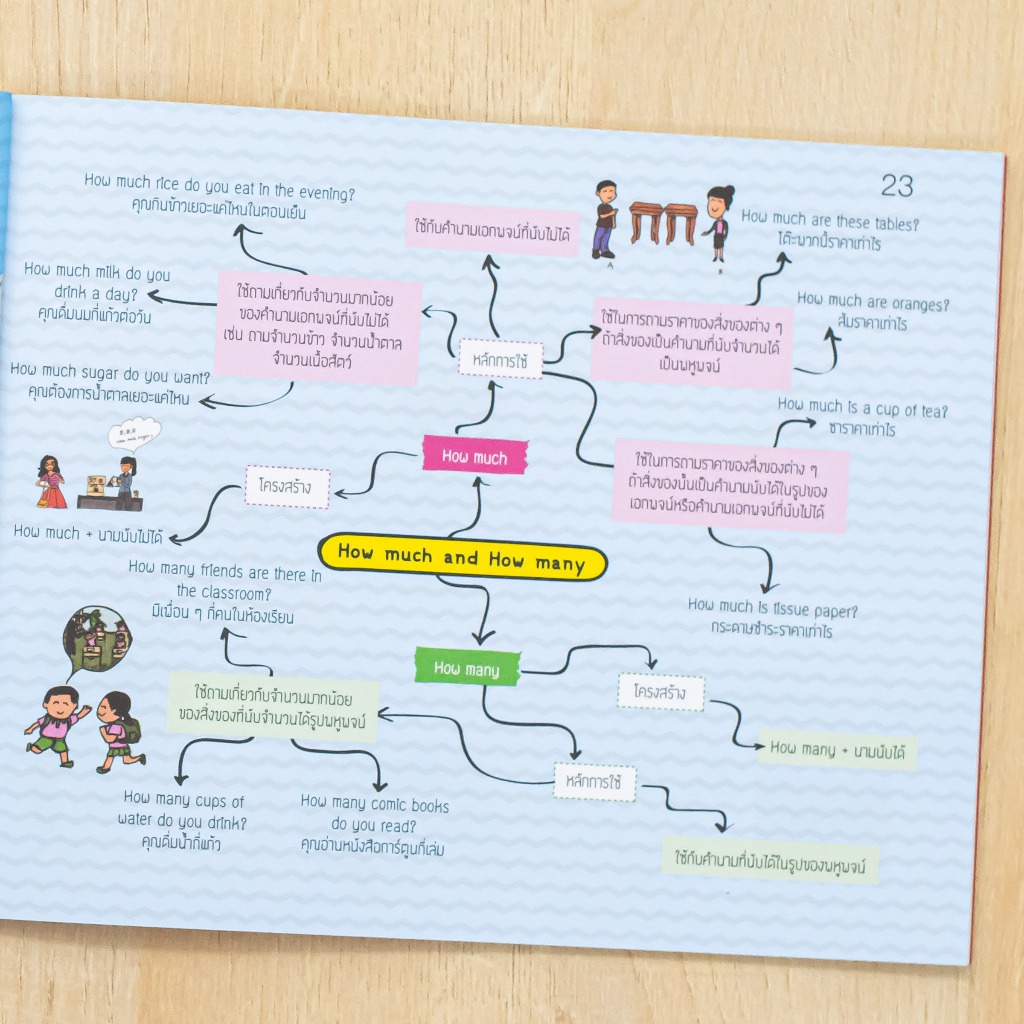 23
How much rice do you eat in the evening?
คุณกินข้าวเยอะแค่ไหนในตอนเย็น
How much milk do you
drink a day?
คุณดื่มนมกี่แก้วต่อวัน
How much sugar do you want?
คุณต้องการน้ำตาลเยอะแค่ไหน
ใช้ถามเกี่ยวกับจำนวนมากน้อย
ของคำนามเอกพจน์ที่นับไม่ได้
เช่น ถามจำนวนข้าว จำนวนน้ำตาล
จำนวนเนื้อสัตว์
ใช้กับคำนามเอกพจน์ที่นับไม่ได้
หลักการใช้
A
B
How much are these tables?
โต๊ะพวกนี้ราคาเท่าไร
ใช้ในการถามราคาของสิ่งของต่าง ๆ
ถ้าสิ่งของเป็นคำนามที่นับจำนวนได้
เป็นพหูพจน์
How much are oranges?
ส้มราคาเท่าไร
How much is a cup of tea?
ชาราคาเท่าไร
ใช้ในการถามราคาของสิ่งของต่าง ๆ
ถ้าสิ่งของนั้นเป็นคำนามนับได้ในรูปของ
เอกพจน์หรือคำนามเอกพจน์ที่นับไม่ได้
How much is tissue paper?
กระดาษชำระราคาเท่าไร
How much
โครงสร้าง
How much + นามนับไม่ได้
How much and How many
How many friends are there in
the classroom?
มีเพื่อน ๆ กี่คนในห้องเรียน
How many
โครงสร้าง
How many + นามนับได้
ใช้ถามเกี่ยวกับจำนวนมากน้อย
ของสิ่งของที่นับจำนวนได้รูปพหูพจน์
หลักการใช้
ใช้กับคำนามที่นับได้ในรูปของพหูพจน์
How many cups of
water do you drink?
คุณดื่มน้ำกี่แก้ว
How many comic books
do you read?
คุณอ่านหนังสือการ์ตูนกี่เล่ม